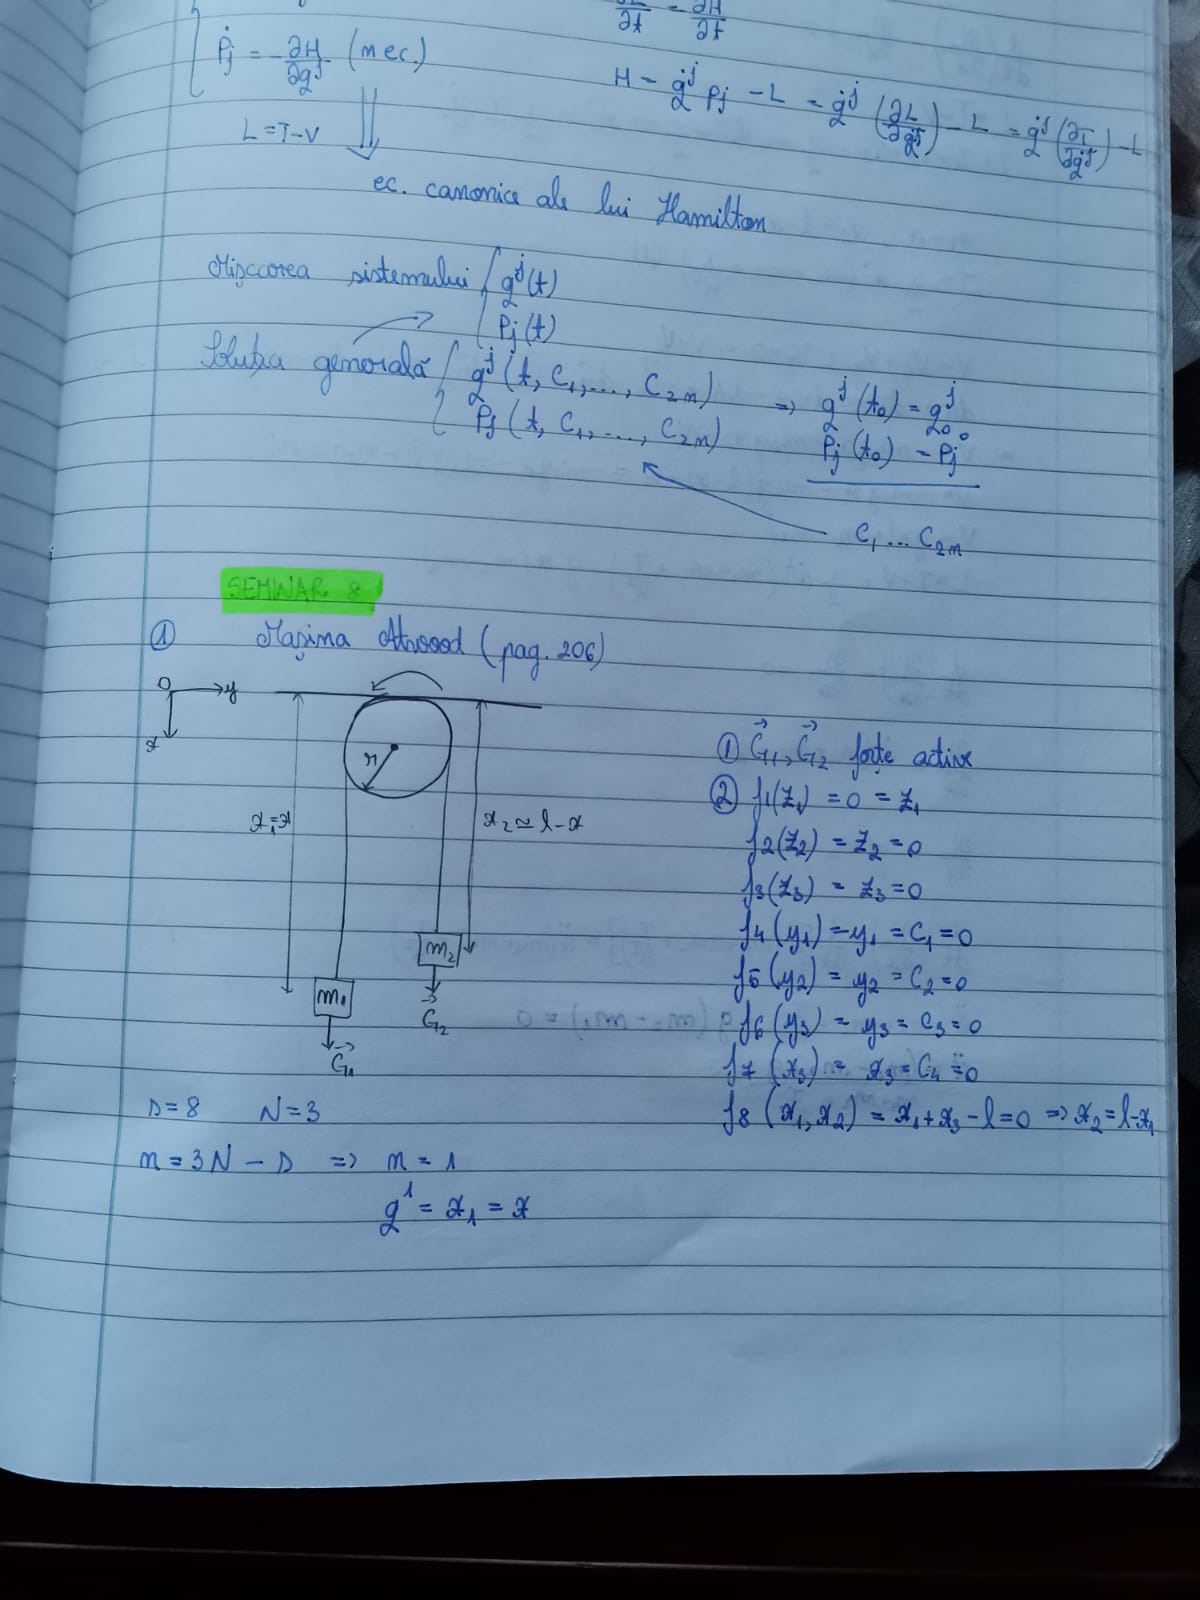 ∂L/∂t = ∂H/∂t
Ṗj = -∂H/∂q^j (mec.)
H = q̇^j Pj - L = q̇^j (∂L/∂q̇^j) - L = q̇^j (∂T/∂q̇^j) - L
L = T-V
ec. canonice ale lui Hamilton
Mișcarea sistemului { q^j(t)
Pj(t)
Soluția generală { q^j (t, C1, ..., C2n) => q^j (t0) = q^j0
Pj (t, C1, ..., C2n) Pj (t0) = Pj0
C1 ... C2n
SEMINAR 8
① Mașina Atwood (pag. 206)
O y
x
r
x1=x
x2≃l-x
m2
G⃗2
m1
G⃗1
① G⃗1, G⃗2 forțe active
② f1(z1) = 0 = z1
f2(z2) = z2 = 0
f3(z3) = z3 = 0
f4(y1) = y1 = C1 = 0
f5(y2) = y2 = C2 = 0
f6(y3) = y3 = C3 = 0
f7(x3) = x3 = C4 = 0
s=8 N=3
f8(x1, x2) = x1 + x3 - l = 0 => x2 = l-x1
n = 3N - s => n = 1
q^1 = x1 = x